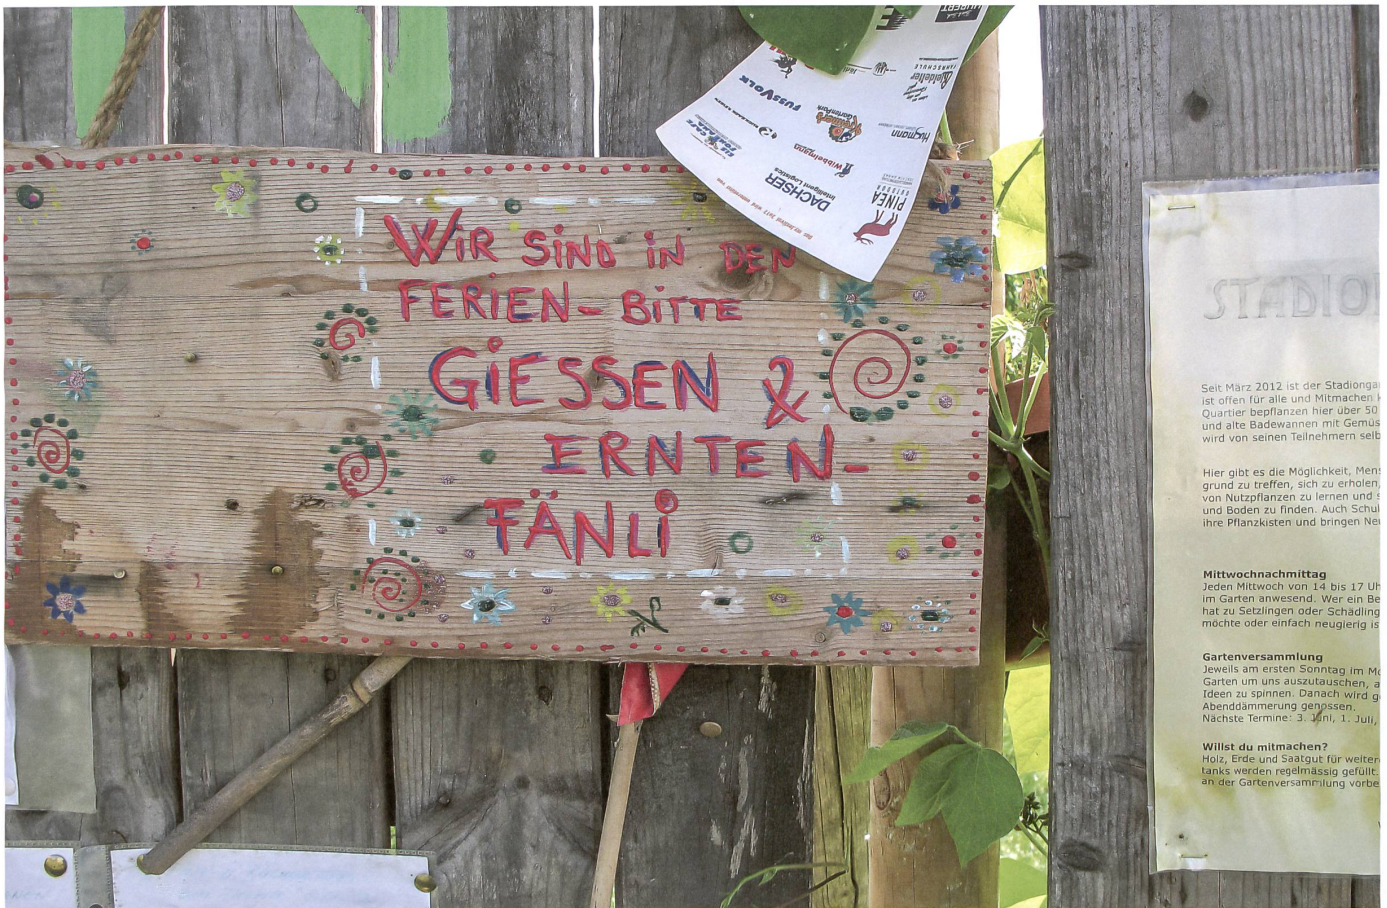 WIR SIND IN DEN
FERIEN - BITTE
GIESSEN &
ERNTEN-
FÄNLI
HUBERT
FAHRSCHULE
FUSSVOLK
GartenPark
Wibbelmann
DACHSER
Intelligent Logistics
PINEA
OUTDOOR
STADION
Seit März 2012 ist der Stadionga
ist offen für alle und Mitmachen
Quartier bepflanzen hier über 50
und alte Badewannen mit Gemüs
wird von seinen Teilnehmern selb
Hier gibt es die Möglichkeit, Mens
grund zu treffen, sich zu erholen,
von Nutzpflanzen zu lernen und
und Boden zu finden. Auch Schul
ihre Pflanzkisten und bringen Neu
Mittwochnachmittag
Jeden Mittwoch von 14 bis 17 Uh
im Garten anwesend. Wer ein Be
hat zu Setzlingen oder Schädling
möchte oder einfach neugierig is
Gartenversammlung
Jeweils am ersten Sonntag im Mo
Garten um uns auszutauschen, a
Ideen zu spinnen. Danach wird g
Abenddämmerung genossen.
Nächste Termine: 3. Juni, 1. Juli,
Willst du mitmachen?
Holz, Erde und Saatgut für weiter
tanks werden regelmässig gefüllt.
an der Gartenversammlung vorbe